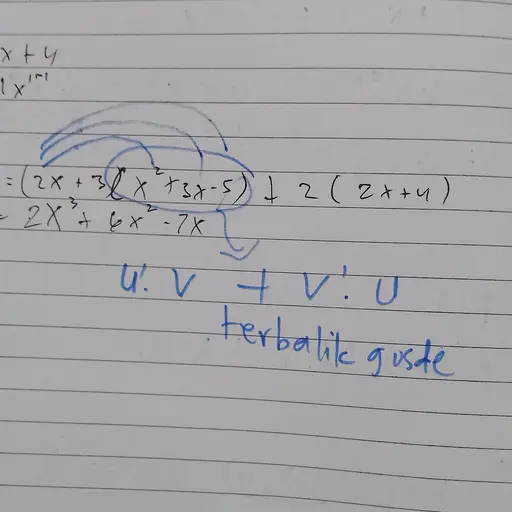 x + 4
= (2x + 3)(x² + 3x - 5) + 2(2x + 4)
= 2x³ + 6x² - 7x
u'. v + v'. u
terbalik gusde